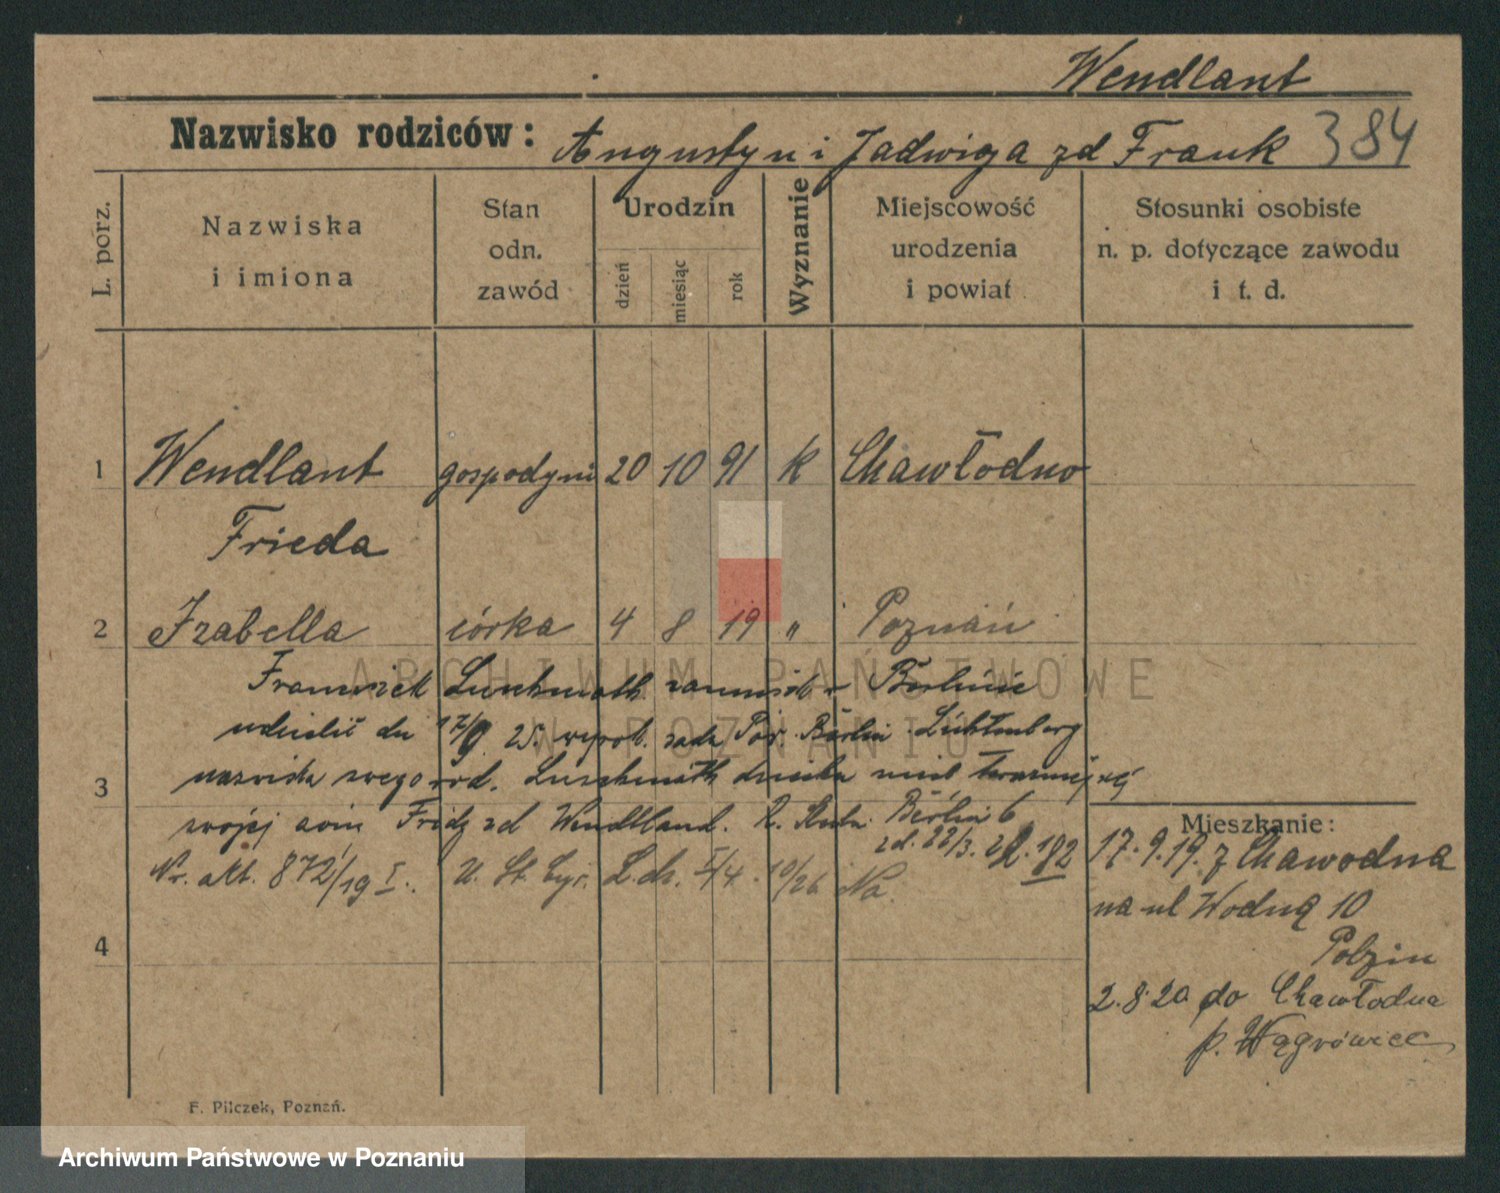 Wendlant
Nazwisko rodziców: Augustyn i Jadwiga zd Frank 384
L. porz.
Nazwiska i imiona
Stan odn. zawód
Urodzin
dzień
miesiąc
rok
Wyznanie
Miejscowość urodzenia i powiat
Stosunki osobiste n. p. dotyczące zawodu i t. d.
1 Wendlant gospodyni 20 10 91 k Chawłodno
Frieda
2 Izabella córka 4 8 19 " Poznań
Franciszek w Berlinie
17/9 25. Berlin Lichtenberg
3 nazwiska swego
swojej Wendland. Berlin 6
zd. 22/3. 182
Nr. akt. 872/19 I. U. St. Cyw. 10/26
4
Mieszkanie:
17.9.19. z Chawodna
na ul Wodną 10
Polzin
2.8.20 do Chawłodna
p. Wągrówiec
F. Pilczek, Poznań.
ARCHIWUM PAŃSTWOWE
W POZNANIU
Archiwum Państwowe w Poznaniu